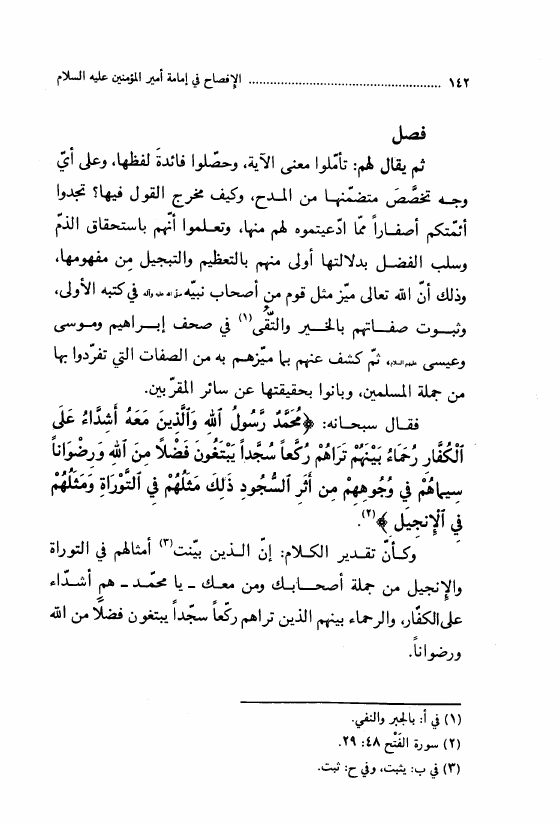 ١٤٢ ........................................ الإفصاح في إمامة أمير المؤمنين عليه السلام
فصل
ثم يقال لهم: تأمّلوا معنى الآية، وحصّلوا فائدةَ لفظها، وعلى أيّ
وجه تخصَّصَ متضمّنها من المدح، وكيف مخرج القول فيها؟ تجدوا
أئمّتكم أصفاراً ممّا ادّعيتموه لهم منها، وتعلموا أنّهم باستحقاق الذمّ
وسلب الفضل بدلالتها أولى منهم بالتعظيم والتبجيل مِن مفهومها،
وذلك أنّ الله تعالى ميّز مثل قوم من أصحاب نبيّه صلى الله عليه وآله في كتبه الأولى،
وثبوت صفاتهم بالخير والتُّقى(١) في صحف إبراهيم وموسى
وعيسى عليهم السلام، ثمّ كشف عنهم بما ميّزهم به من الصفات التي تفرّدوا بها
من جملة المسلمين، وبانوا بحقيقتها عن سائر المقرّبين.
فقال سبحانه: ﴿مُحَمَّدٌ رَّسُولُ اللهِ وَالَّذِينَ مَعَهُ أَشِدَّاءُ عَلَى
الْكُفَّارِ رُحَمَاءُ بَيْنَهُمْ تَرَاهُمْ رُكَّعاً سُجَّداً يَبْتَغُونَ فَضْلًا مِنَ اللهِ وَرِضْوَاناً
سِيمَاهُمْ فِي وُجُوهِهِمْ مِن أَثَرِ السُّجُودِ ذَلِكَ مَثَلُهُمْ فِي التَّوْرَاةِ وَمَثَلُهُمْ
فِي الْإِنجِيلِ﴾(٢).
وكأنّ تقدير الكلام: إنّ الذين بيّنت(٣) أمثالهم في التوراة
والإنجيل من جملة أصحابك ومن معك ـ يا محمّد ـ هم أشدّاء
على الكفّار، والرحماء بينهم الذين تراهم ركّعاً سجّداً يبتغون فضلاً من الله
ورضواناً.
(١) في أ: بالجبر والنفي.
(٢) سورة الفَتْح ٤٨: ٢٩.
(٣) في ب: يثبت، وفي ح: ثبت.